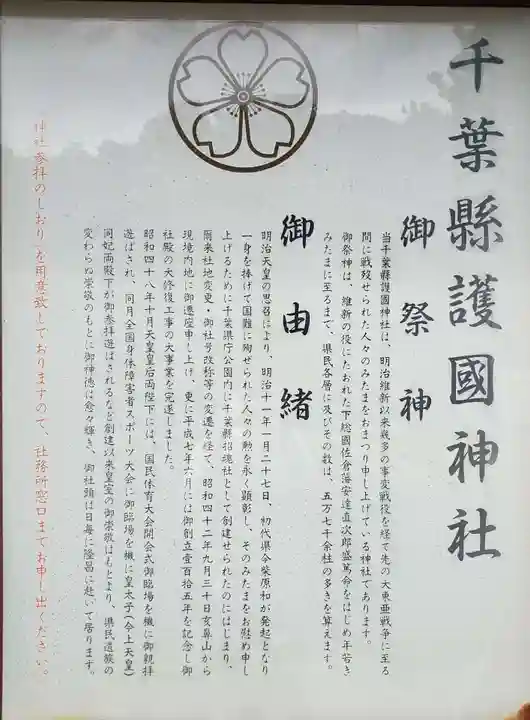 千葉縣護國神社
御祭神
当千葉縣護國神社は、明治維新以来幾多の事変戦役を経て先の大東亜戦争に至る
間に戦歿せられた人々のみたまをおまつり申し上げている神社であります。
御祭神は、維新の役にたおれた下総國佐倉藩安達直次郎盛篤命をはじめ年若き
みたまに至るまで、県民各層に及びその数は、五万七千余柱の多きを算えます。
御由緒
明治天皇の思召により、明治十一年一月二十七日、初代県令柴原和が発起となり
一身を捧げて国難に殉せられた人々の勲を永く顕彰し、そのみたまをお慰め申し
上げるために千葉県庁公園内に千葉縣招魂社として創建せられたのにはじまり、
爾来社地変更・御社号改称等の変遷を経て、昭和四十二年九月三十日亥鼻山から
現境内地に御遷座申し上げ、更に平成七年六月には御創立壹百拾五年を記念し御
社殿の大修復工事の大事業を完遂しました。
昭和四十八年十月天皇皇后両陛下には、国民体育大会開会式御臨場を機に御親拝
遊ばされ、同月全国身体障害者スポーツ大会に御臨場を機に皇太子(今上天皇)
同妃両殿下が御参拝遊ばされるなど創建以来皇室の御崇敬はもとより、県民遺族の
変わらぬ崇敬のもとに御神徳は愈々輝き、御社頭は日毎に隆昌に赴いて居ります。
神社参拝のしおりを用意致しておりますので、社務所窓口までお申し出ください。